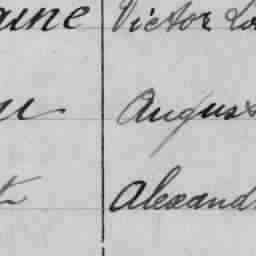 aine Victor Lo
u Augus
t Alexand